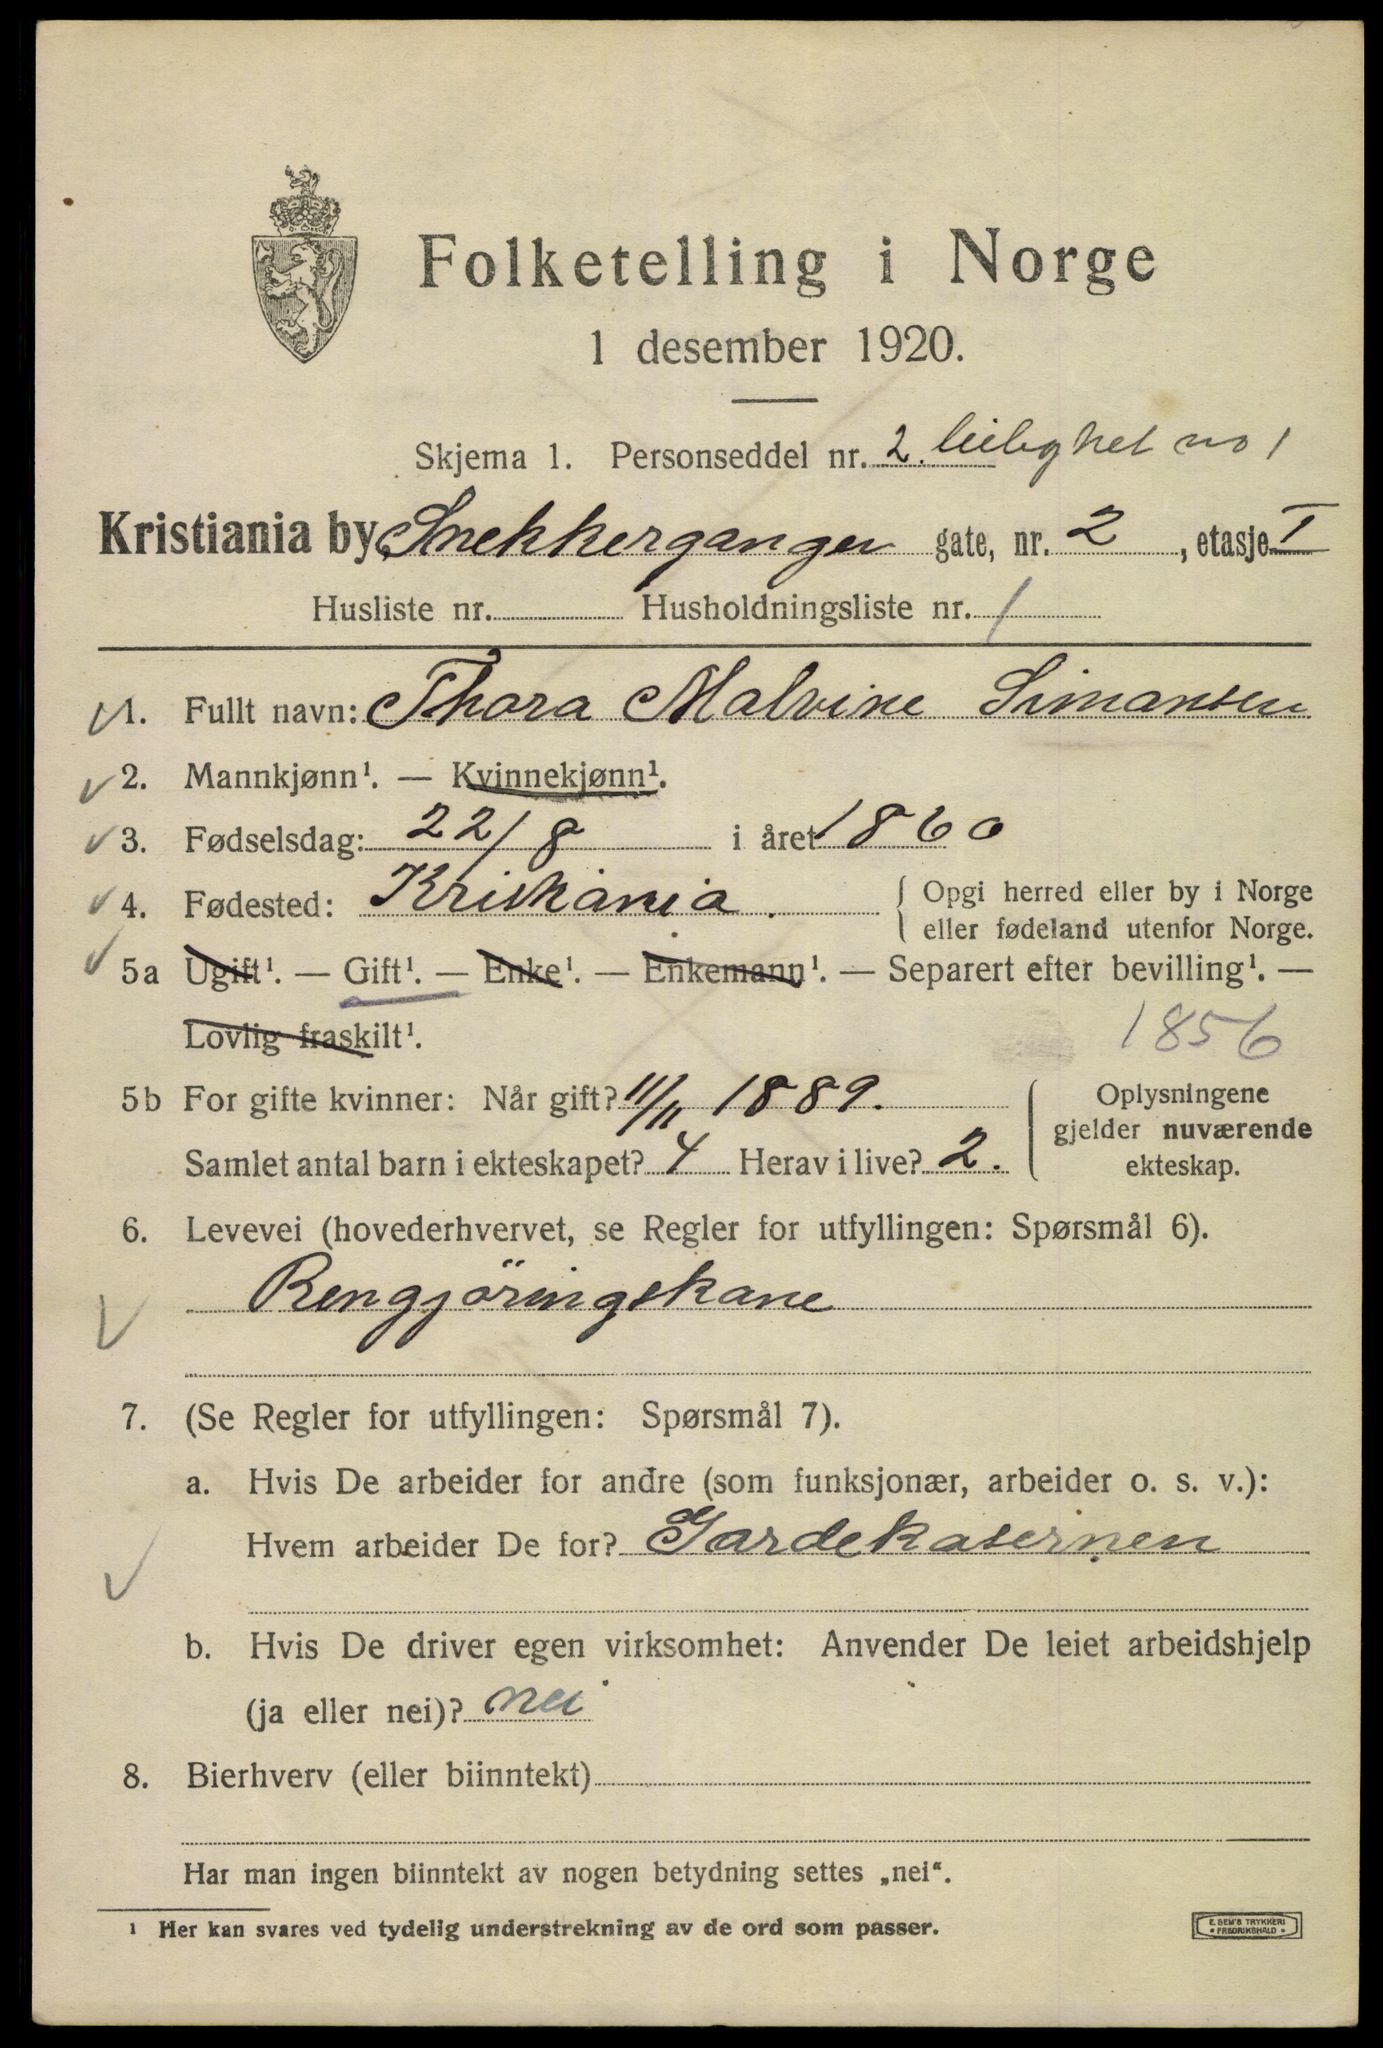 Folketelling i Norge
1 desember 1920.
Skjema 1. Personseddel nr. 2. leilighet no 1
Kristiania by, Snekkerganger gate, nr. 2, etasje I
Husliste nr. Husholdningsliste nr. 1
1. Fullt navn: Thora Malvine Simansen
2. Mannkjønn¹. — Kvinnekjønn¹.
3. Fødselsdag: 22/8 i året 1860
4. Fødested: Kristiania. { Opgi herred eller by i Norge
eller fødeland utenfor Norge.
5a Ugift¹. — Gift¹. — Enke¹. — Enkemann¹. — Separert efter bevilling¹. —
Lovlig fraskilt¹. 1856
5b For gifte kvinner: Når gift? 11/11 1889. Oplysningene
gjelder nuværende
Samlet antal barn i ekteskapet? 4 Herav i live? 2. ekteskap.
6. Levevei (hovederhvervet, se Regler for utfyllingen: Spørsmål 6).
Rengjöringskane
7. (Se Regler for utfyllingen: Spørsmål 7).
a. Hvis De arbeider for andre (som funksjonær, arbeider o. s. v.):
Hvem arbeider De for? Gardekasernen
b. Hvis De driver egen virksomhet: Anvender De leiet arbeidshjelp
(ja eller nei)? nei
8. Bierhverv (eller biinntekt)
Har man ingen biinntekt av nogen betydning settes „nei“.
¹ Her kan svares ved tydelig understrekning av de ord som passer.
E. SEM'S TRYKKERI
FREDRIKSHALD